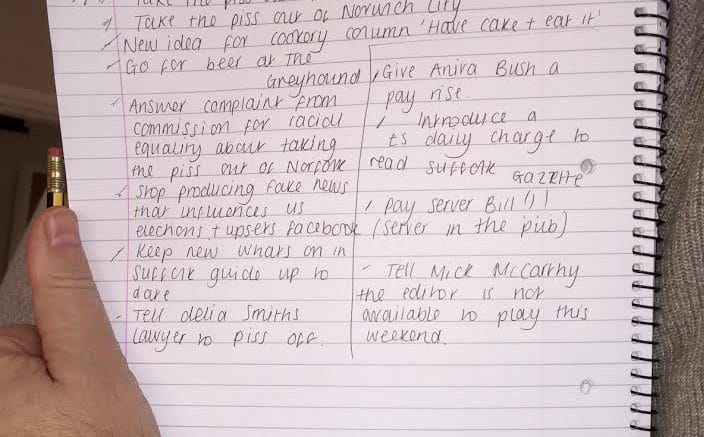 Take the piss out of Norwich City
New idea for cookory column 'Have cake + eat it'
Go for beer at The
Greyhound
Answer complaint from
commission for racial
equality about taking
the piss out of Norfolk
Stop producing fake news
that influences US
elections + upsets Facebook
Keep new whats on in
Suffolk guide up to
date
Tell delia Smiths
lawyer to piss off.
Give Anira Bush a
pay rise.
Introduce a
daily charge to
read Suffolk
GAZETTE
pay server Bill !!!
(server in the pub)
- Tell Mick McCarthy
the editor is not
available to play this
weekend.